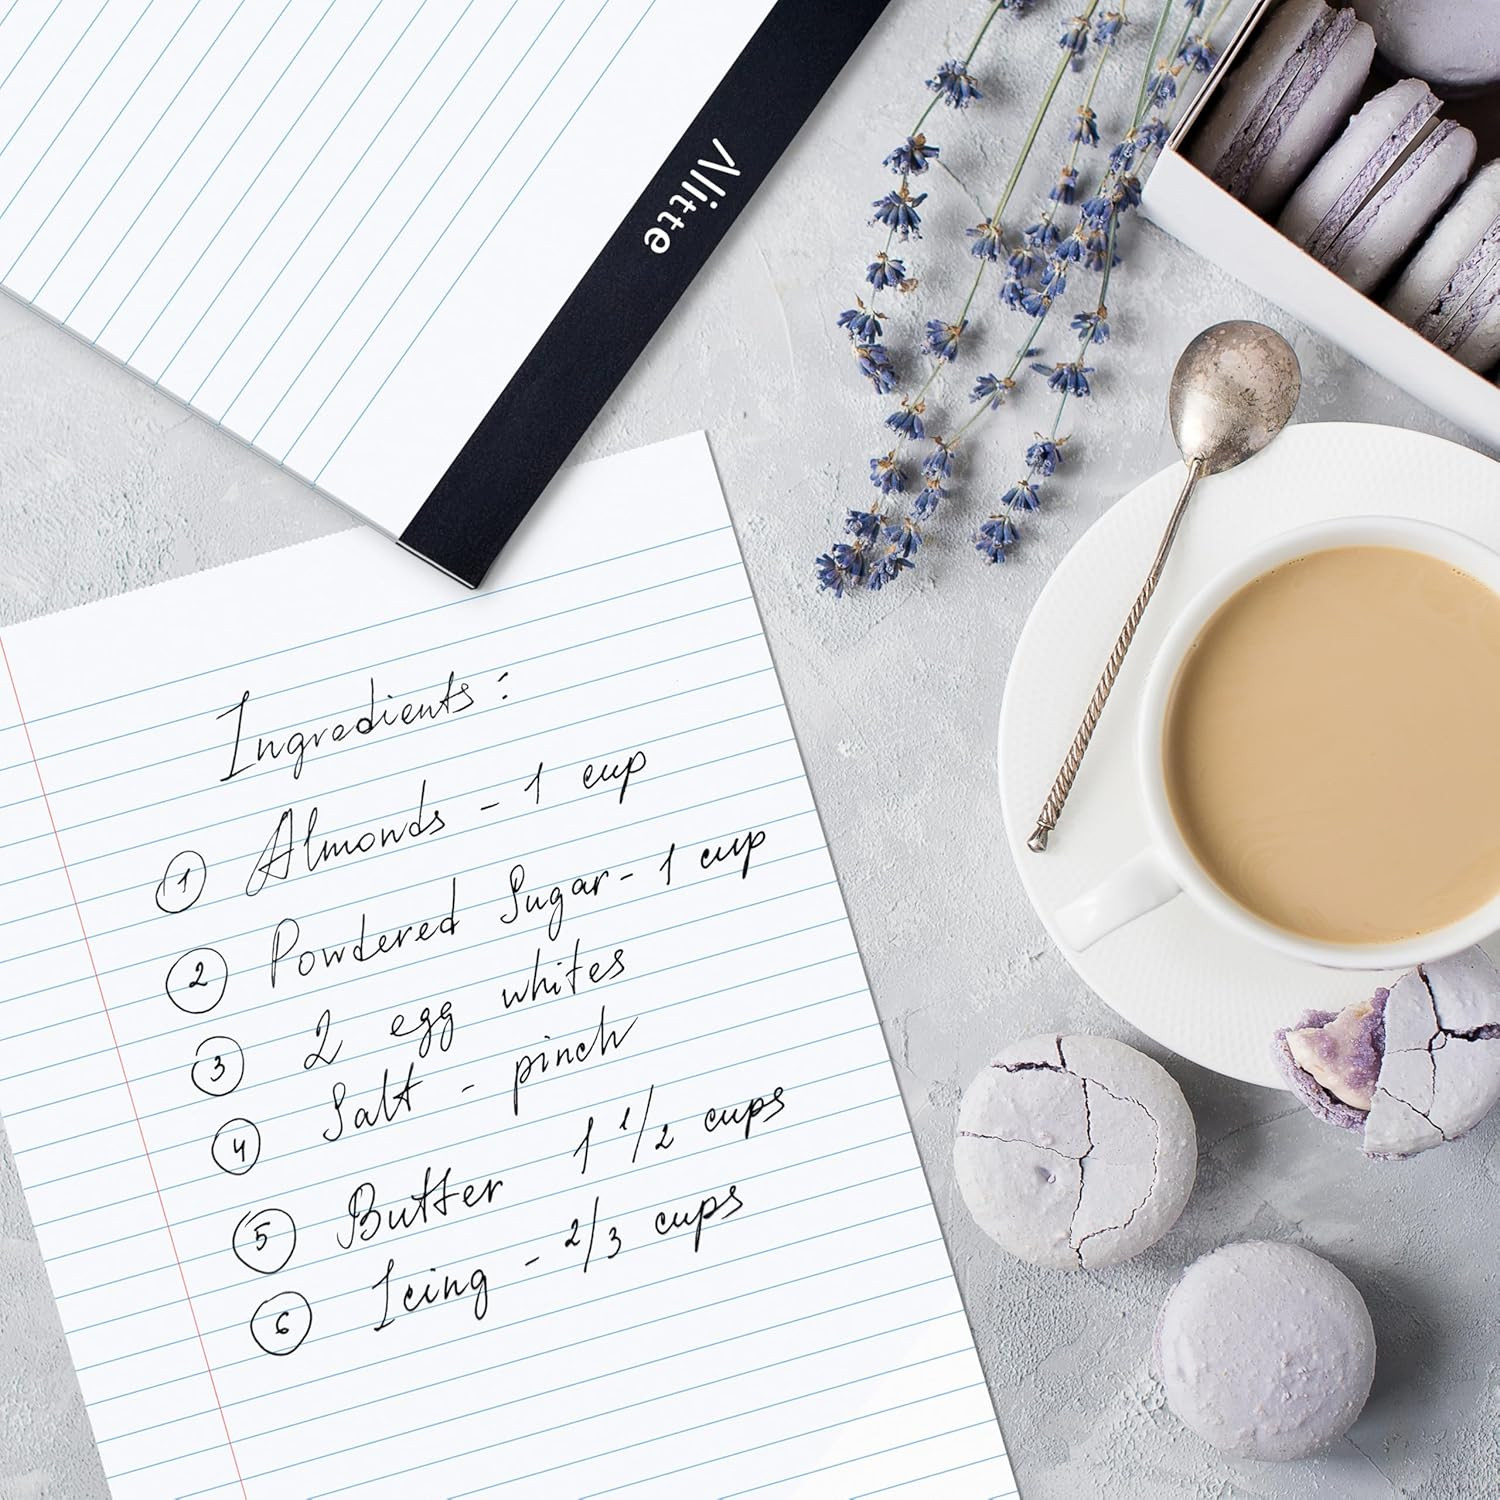 Alitte
Ingredients:
① Almonds - 1 cup
② Powdered Sugar - 1 cup
③ 2 egg whites
④ Salt - pinch
⑤ Butter 1 1/2 cups
⑥ Icing - 2/3 cups